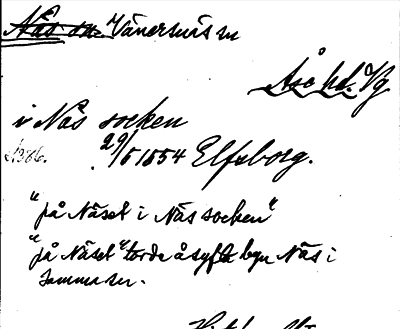 Näs sn. Vänersnäs sn
Åse hd. Vg
i Näs socken
A386. 29/5 1554 Elfsborg.
"på Näset i Näs socken"
"på Näset" torde åsyfta byn Näs i
samma sn.